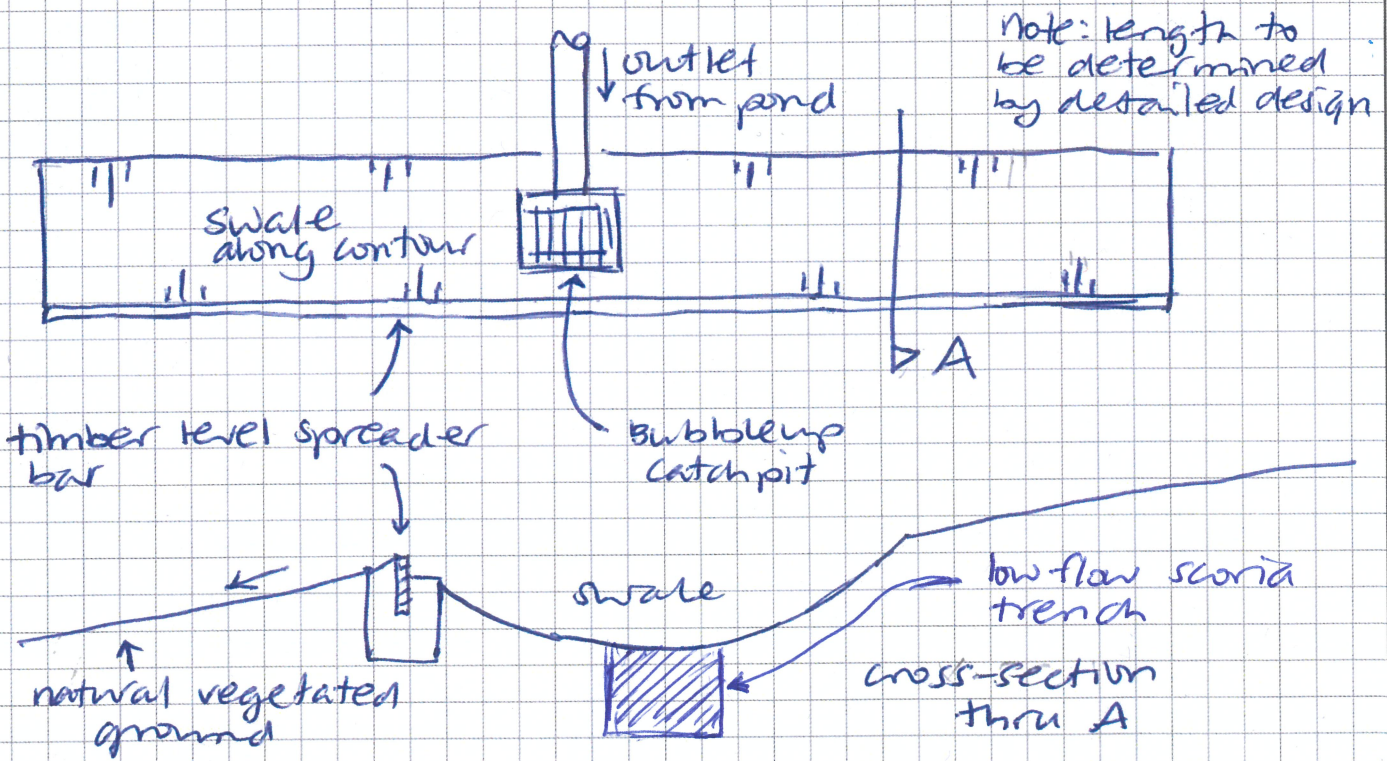 outlet
from pond
note: length to
be determined
by detailed design
swale
along contour
A
timber level spreader
bar
Bubbleup
catchpit
swale
low flow scoria
trench
natural vegetated
ground
cross-section
thru A